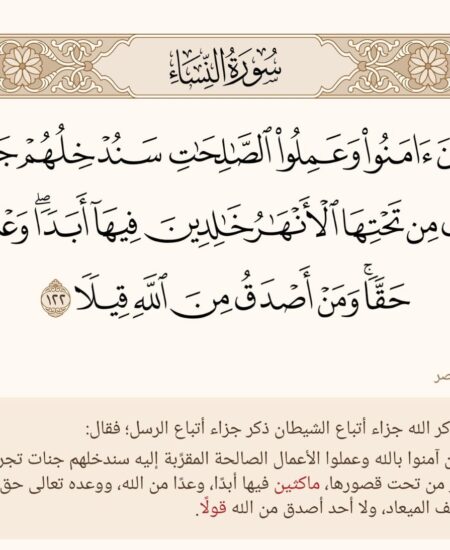 سُورَةُ النِّسَاءِ
ءَامَنُوا۟ وَعَمِلُوا۟ ٱلصَّـٰلِحَـٰتِ سَنُدْخِلُهُمْ
مِن تَحْتِهَا ٱلْأَنْهَـٰرُ خَـٰلِدِينَ فِيهَآ أَبَدًۭا ۖ
حَقًّۭا ۚ وَمَنْ أَصْدَقُ مِنَ ٱللَّهِ قِيلًۭا ١٢٢
كر الله جزاء أتباع الشيطان ذكر جزاء أتباع الرسل؛ فقال:
ن آمنوا بالله وعملوا الأعمال الصالحة المقرّبة إليه سندخلهم جنات تجر
من تحت قصورها، ماكثين فيها أبدًا، وعدًا من الله، ووعده تعالى حق
ف الميعاد، ولا أحد أصدق من الله قولًا.